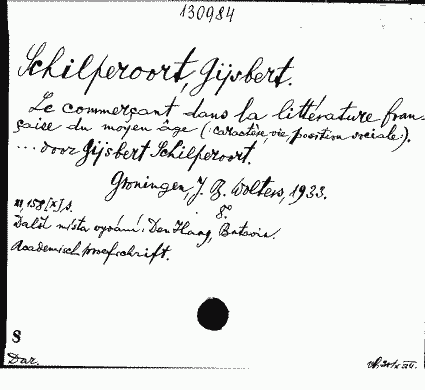 130984
Schilperoort, Gijsbert.
Le commerçant dans la littérature fran-
çaise du moyen âge (: caractère, vie, position sociale:).
... door Gijsbert Schilperoort.
Groningen, J. B. Wolters, 1933.
8°.
158 [X] s.
Další místa vydání: Den Haag, Batavia.
Academisch proefschrift.
S
Dar.